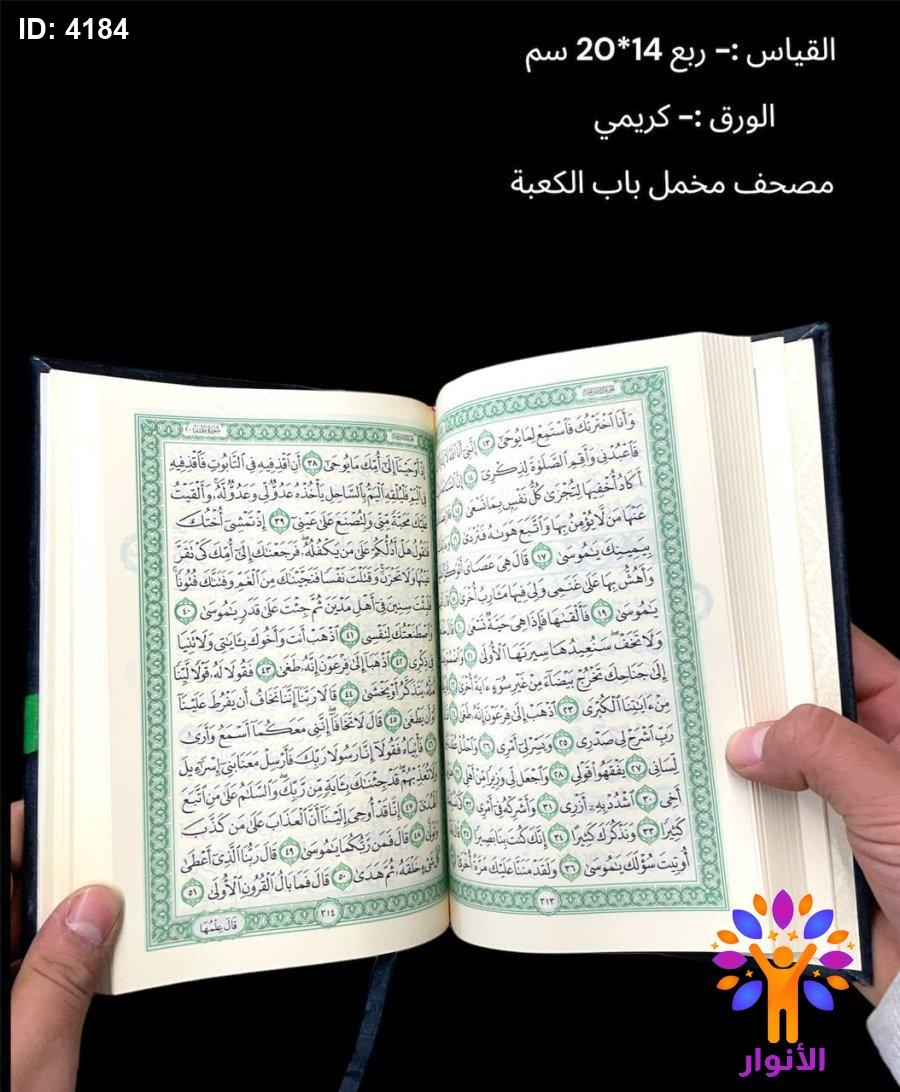 ID: 4184
القياس :- ربع 14*20 سم
الورق :- كريمي
مصحف مخمل باب الكعبة
وَأَنَا ٱخْتَرْتُكَ فَٱسْتَمِعْ لِمَا يُوحَىٰٓ ١٣ إِنَّنِىٓ أَنَا ٱللَّهُ
فَٱعْبُدْنِى وَأَقِمِ ٱلصَّلَوٰةَ لِذِكْرِىٓ ١٤ إِنَّ
أَكَادُ أُخْفِيهَا لِتُجْزَىٰ كُلُّ نَفْسٍۭ بِمَا تَسْعَىٰ ١٥
عَنْهَا مَن لَّا يُؤْمِنُ بِهَا وَٱتَّبَعَ هَوَىٰهُ فَتَرْدَىٰ ١٦
بِيَمِينِكَ يَٰمُوسَىٰ ١٧ قَالَ هِىَ عَصَاىَ
وَأَهُشُّ بِهَا عَلَىٰ غَنَمِى وَلِىَ فِيهَا مَـَٔارِبُ أُخْرَىٰ
يَٰمُوسَىٰ ١٩ فَأَلْقَىٰهَا فَإِذَا هِىَ حَيَّةٌ تَسْعَىٰ
وَلَا تَخَفْ سَنُعِيدُهَا سِيرَتَهَا ٱلْأُولَىٰ ٢١
إِلَىٰ جَنَاحِكَ تَخْرُجْ بَيْضَآءَ مِنْ غَيْرِ سُوٓءٍ ءَايَةً أُخْرَىٰ
مِنْ ءَايَٰتِنَا ٱلْكُبْرَى ٢٣ ٱذْهَبْ إِلَىٰ فِرْعَوْنَ إِنَّهُۥ طَغَىٰ
رَبِّ ٱشْرَحْ لِى صَدْرِى ٢٥ وَيَسِّرْ لِىٓ أَمْرِى ٢٦ وَٱحْلُلْ عُقْدَةً
لِّسَانِى ٢٧ يَفْقَهُوا۟ قَوْلِى ٢٨ وَٱجْعَل لِّى وَزِيرًا مِّنْ أَهْلِى
أَخِى ٣٠ ٱشْدُدْ بِهِۦٓ أَزْرِى ٣١ وَأَشْرِكْهُ فِىٓ أَمْرِى ٣٢
كَثِيرًا ٣٣ وَنَذْكُرَكَ كَثِيرًا ٣٤ إِنَّكَ كُنتَ بِنَا بَصِيرًا ٣٥ قَالَ
أُوتِيتَ سُؤْلَكَ يَٰمُوسَىٰ ٣٦ وَلَقَدْ مَنَنَّا عَلَيْكَ مَرَّةً أُخْرَىٰٓ
٣١٣
إِذْ أَوْحَيْنَآ إِلَىٰٓ أُمِّكَ مَا يُوحَىٰٓ ٣٨ أَنِ ٱقْذِفِيهِ فِى ٱلتَّابُوتِ فَٱقْذِفِيهِ
فِى ٱلْيَمِّ فَلْيُلْقِهِ ٱلْيَمُّ بِٱلسَّاحِلِ يَأْخُذْهُ عَدُوٌّ لِّى وَعَدُوٌّ لَّهُۥ وَأَلْقَيْتُ
عَلَيْكَ مَحَبَّةً مِّنِّى وَلِتُصْنَعَ عَلَىٰ عَيْنِىٓ ٣٩ إِذْ تَمْشِىٓ أُخْتُكَ
فَتَقُولُ هَلْ أَدُلُّكُمْ عَلَىٰ مَن يَكْفُلُهُۥ فَرَجَعْنَٰكَ إِلَىٰٓ أُمِّكَ كَىْ تَقَرَّ
عَيْنُهَا وَلَا تَحْزَنَ وَقَتَلْتَ نَفْسًا فَنَجَّيْنَٰكَ مِنَ ٱلْغَمِّ وَفَتَنَّٰكَ فُتُونًا
فَلَبِثْتَ سِنِينَ فِىٓ أَهْلِ مَدْيَنَ ثُمَّ جِئْتَ عَلَىٰ قَدَرٍ يَٰمُوسَىٰ ٤٠
وَٱصْطَنَعْتُكَ لِنَفْسِى ٤١ ٱذْهَبْ أَنتَ وَأَخُوكَ بِـَٔايَٰتِى وَلَا تَنِيَا
فِى ذِكْرِى ٤٢ ٱذْهَبَآ إِلَىٰ فِرْعَوْنَ إِنَّهُۥ طَغَىٰ ٤٣ فَقُولَا لَهُۥ قَوْلًا لَّيِّنًا
لَّعَلَّهُۥ يَتَذَكَّرُ أَوْ يَخْشَىٰ ٤٤ قَالَا رَبَّنَآ إِنَّنَا نَخَافُ أَن يَفْرُطَ عَلَيْنَآ
أَوْ أَن يَطْغَىٰ ٤٥ قَالَ لَا تَخَافَآ إِنَّنِى مَعَكُمَآ أَسْمَعُ وَأَرَىٰ
٤٦ فَأْتِيَاهُ فَقُولَآ إِنَّا رَسُولَا رَبِّكَ فَأَرْسِلْ مَعَنَا بَنِىٓ إِسْرَٰٓءِيلَ
وَلَا تُعَذِّبْهُمْ قَدْ جِئْنَٰكَ بِـَٔايَةٍ مِّن رَّبِّكَ وَٱلسَّلَٰمُ عَلَىٰ مَنِ ٱتَّبَعَ
ٱلْهُدَىٰٓ ٤٧ إِنَّا قَدْ أُوحِىَ إِلَيْنَآ أَنَّ ٱلْعَذَابَ عَلَىٰ مَن كَذَّبَ
وَتَوَلَّىٰ ٤٨ قَالَ فَمَن رَّبُّكُمَا يَٰمُوسَىٰ ٤٩ قَالَ رَبُّنَا ٱلَّذِىٓ أَعْطَىٰ
كُلَّ شَىْءٍ خَلْقَهُۥ ثُمَّ هَدَىٰ ٥٠ قَالَ فَمَا بَالُ ٱلْقُرُونِ ٱلْأُولَىٰ ٥١
قَالَ عِلْمُهَا
٣١٤
الأنوار